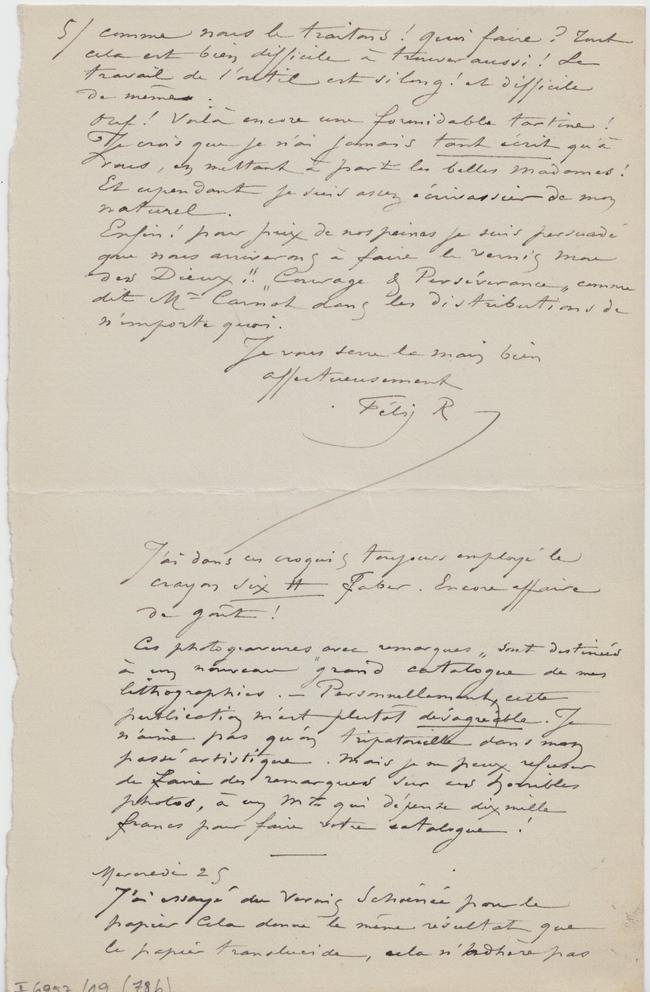 5/ comme nous le traitons ! quoi faire ? Tout
cela est bien difficile à trouver aussi ! Le
travail de l'outil est si long ! et difficile
de même.
Ouf ! Voilà encore une formidable tartine !
Je crois que je n'ai jamais tant écrit qu'à
vous, en mettant à part les belles Madames !
Et cependant je suis assez écrivassier de mon
naturel.
Enfin ! pour prix de nos peines je suis persuadé
que nous arriverons à faire le vernis mou
des Dieux !! "Courage & Persévérance" comme
dit Mr Carnot dans les distributions de
n'importe quoi.
Je vous serre la main bien
affectueusement
Félix R
J'ai dans ces croquis toujours employé le
crayon six H Faber. Encore affaire
de goût !
Ces photogravures avec remarques, sont destinées
à un nouveau "grand catalogue de mes
lithographies. — Personnellement, cette
publication m'est plutôt désagréable. Je
n'aime pas qu'on tripatouille dans mon
passé artistique. Mais je ne peux refuser
de faire des remarques sur ces horribles
photos, à un Mr qui dépense dix mille
francs pour faire votre catalogue !
Mercredi 25
J'ai essayé du vernis Schoénée pour le
papier Cela donne le même résultat que
le papier translucide, cela n'adhère pas
I 6997/19 (78b)